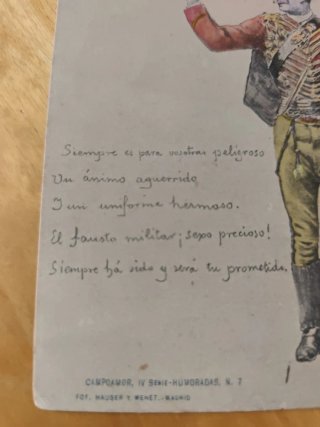 Siempre es para vosotras peligroso
Un ánimo aguerrido
Y un uniforme hermoso.
El fausto militar ¡sexo precioso!
Siempre há sido y será tu prometido.
CAMPOAMOR, IV SERIE-HUMORADAS, N. 7
FOT. HAUSER Y MENET.-MADRID